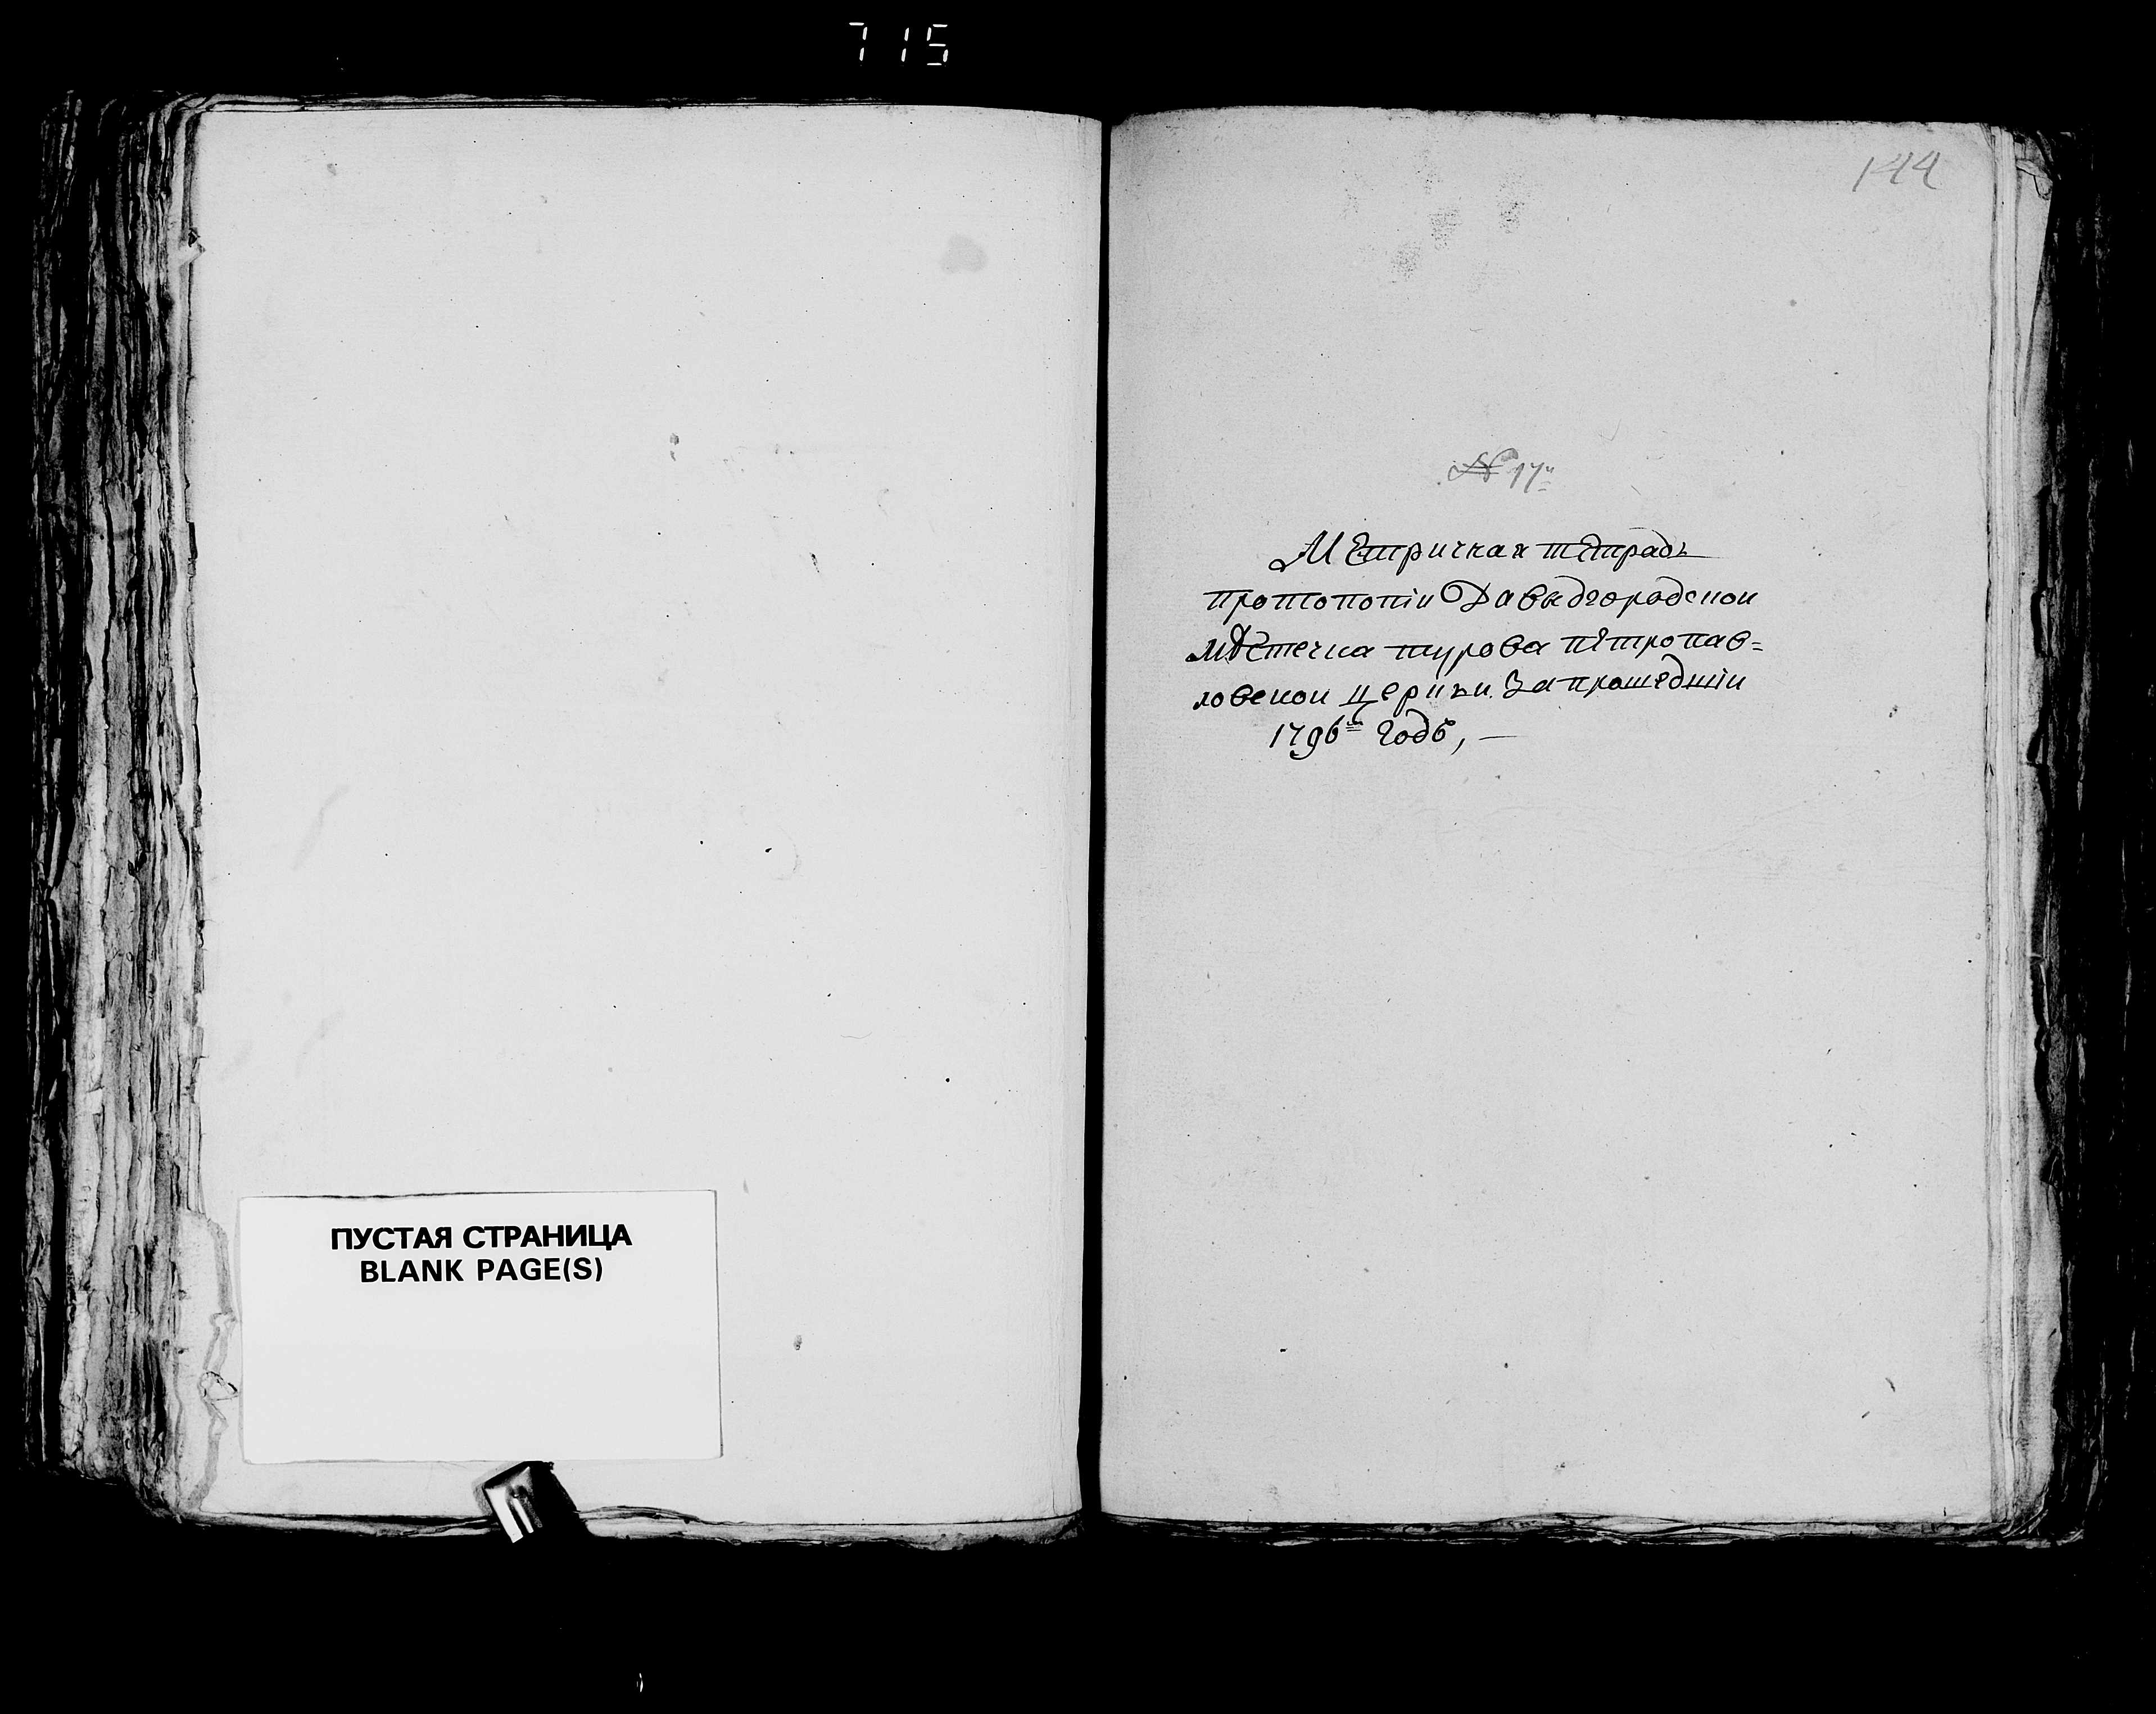 715
ПУСТАЯ СТРАНИЦА
BLANK PAGE(S)
144
№ 17й
Метричкая тетрадь
протопопіи Давыдгородскои
мѣстечка турова петропав=
ловскои церькви за прошедшіи
1796й годъ, —